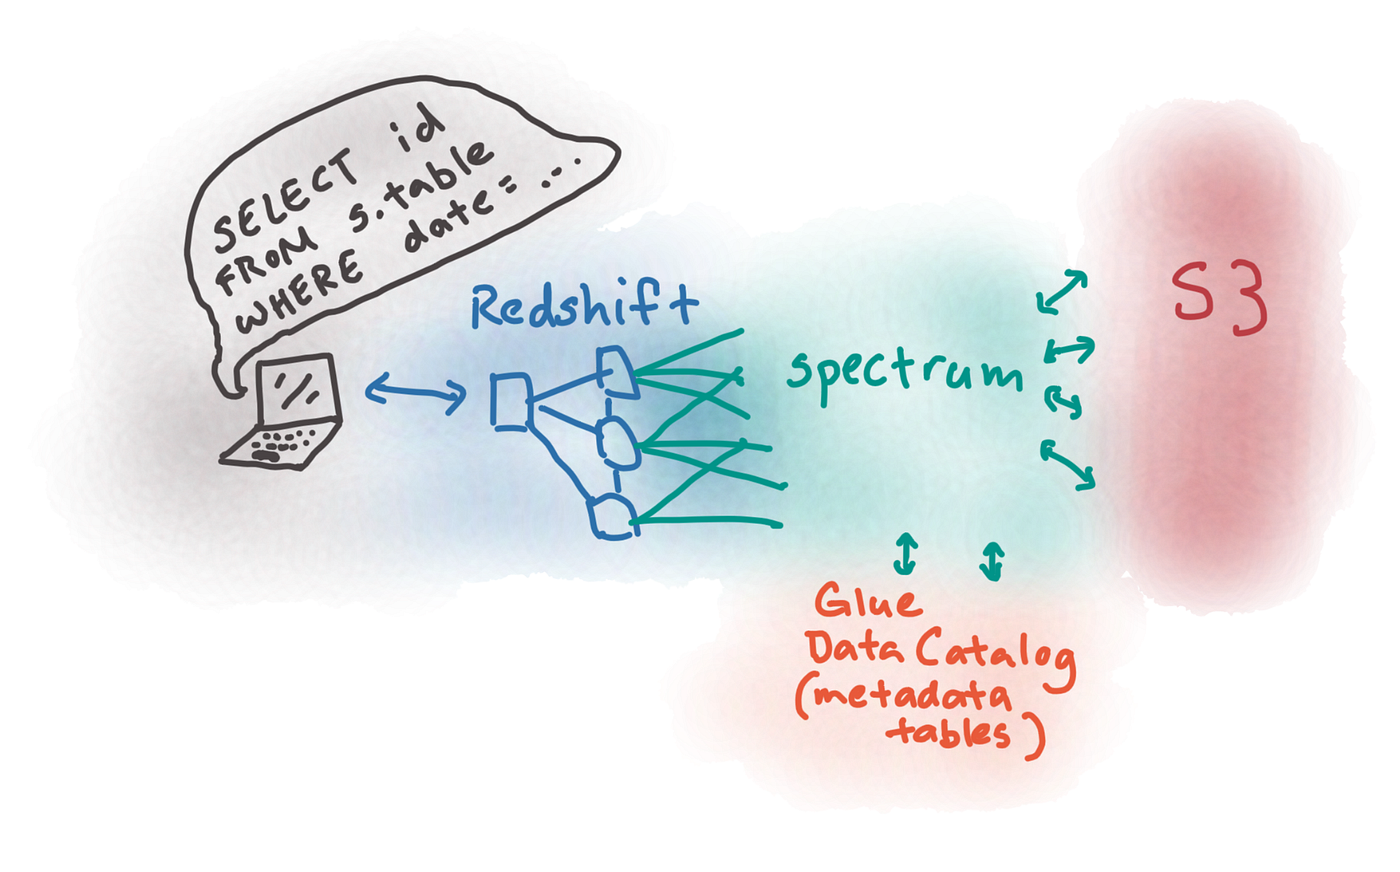 SELECT id
FROM s.table
WHERE date = ...
Redshift
spectrum
S3
Glue
Data Catalog
(metadata
tables)